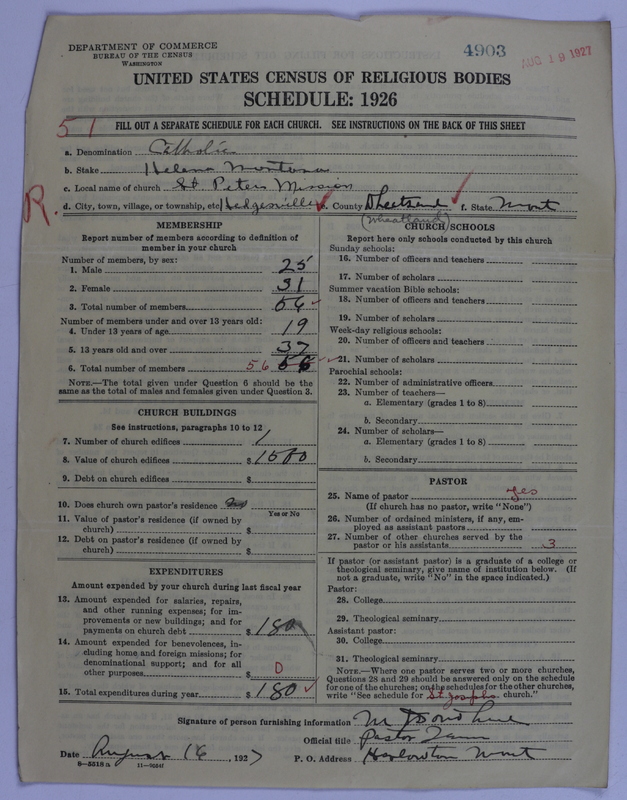 DEPARTMENT OF COMMERCE
BUREAU OF THE CENSUS
WASHINGTON
4903
AUG 19 1927
UNITED STATES CENSUS OF RELIGIOUS BODIES
SCHEDULE: 1926
51
FILL OUT A SEPARATE SCHEDULE FOR EACH CHURCH. SEE INSTRUCTIONS ON THE BACK OF THIS SHEET
a. Denomination Catholic
b. Stake Helena Montana
c. Local name of church St Peters Mission
R.
d. City, town, village, or township, etc. Hedgesville e. County Wheatland f. State Mont
(Wheatland)
MEMBERSHIP
Report number of members according to definition of
member in your church
Number of members, by sex:
1. Male 25
2. Female 31
3. Total number of members 56
Number of members under and over 13 years old:
4. Under 13 years of age 19
5. 13 years old and over 37
6. Total number of members 56
NOTE.—The total given under Question 6 should be the
same as the total of males and females given under Question 3.
CHURCH BUILDINGS
See instructions, paragraphs 10 to 12
7. Number of church edifices 1
8. Value of church edifices $1500
9. Debt on church edifices $
10. Does church own pastor's residence
Yes or No
11. Value of pastor's residence (if owned by
church) $
12. Debt on pastor's residence (if owned by
church) $
EXPENDITURES
Amount expended by your church during last fiscal year
13. Amount expended for salaries, repairs,
and other running expenses; for im-
provements or new buildings; and for
payments on church debt $180
14. Amount expended for benevolences, in-
cluding home and foreign missions; for
denominational support; and for all
other purposes $ 0
15. Total expenditures during year $180
CHURCH SCHOOLS
Report here only schools conducted by this church
Sunday schools:
16. Number of officers and teachers
17. Number of scholars
Summer vacation Bible schools:
18. Number of officers and teachers
19. Number of scholars
Week-day religious schools:
20. Number of officers and teachers
21. Number of scholars
Parochial schools:
22. Number of administrative officers
23. Number of teachers—
a. Elementary (grades 1 to 8)
b. Secondary
24. Number of scholars—
a. Elementary (grades 1 to 8)
b. Secondary
PASTOR
25. Name of pastor yes
(If church has no pastor, write "None")
26. Number of ordained ministers, if any, em-
ployed as assistant pastors
27. Number of other churches served by the
pastor or his assistants 3
If pastor (or assistant pastor) is a graduate of a college or
theological seminary, give name of institution below. (If
not a graduate, write "No" in the space indicated.)
Pastor:
28. College
29. Theological seminary
Assistant pastor:
30. College
31. Theological seminary
NOTE.—Where one pastor serves two or more churches,
Questions 28 and 29 should be answered only on the schedule
for one of the churches; on the schedules for the other churches,
write "See schedule for St Josephs church."
Signature of person furnishing information M J Donohue
Official title Pastor
Date August 16, 1927 P. O. Address Harlowton Mont
8—5518a 11—9054f